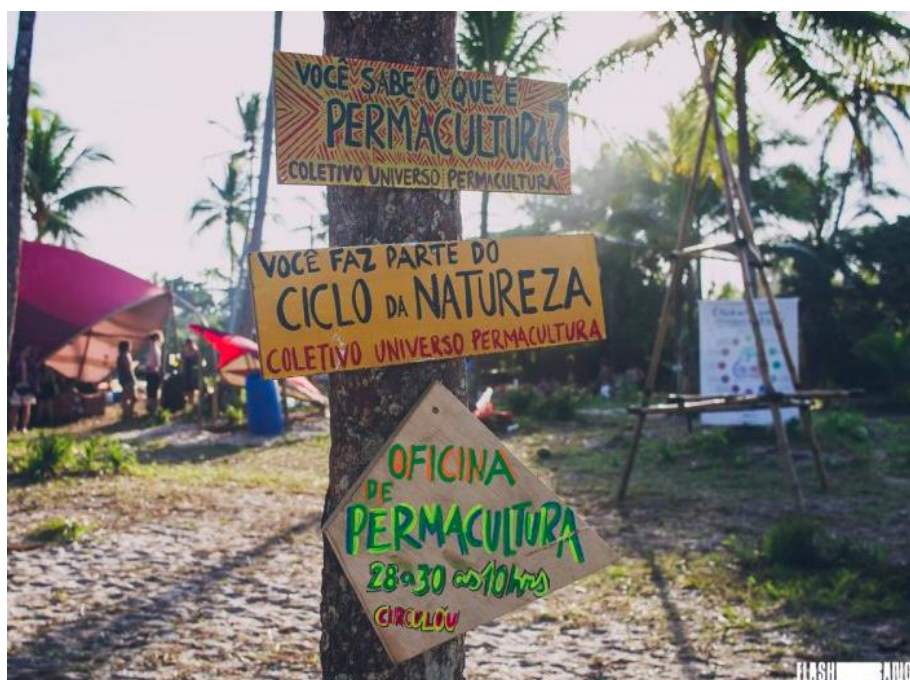 VOCÊ SABE O QUE É
PERMACULTURA?
COLETIVO UNIVERSO PERMACULTURA
VOCÊ FAZ PARTE DO
CICLO DA NATUREZA
COLETIVO UNIVERSO PERMACULTURA
OFICINA
DE
PERMACULTURA
28 a 30 às 10hrs
CIRCULOU
FLASH BANG